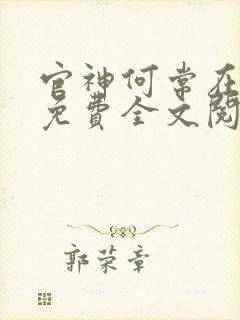 官神何常在
免费全文阅
郭荣章